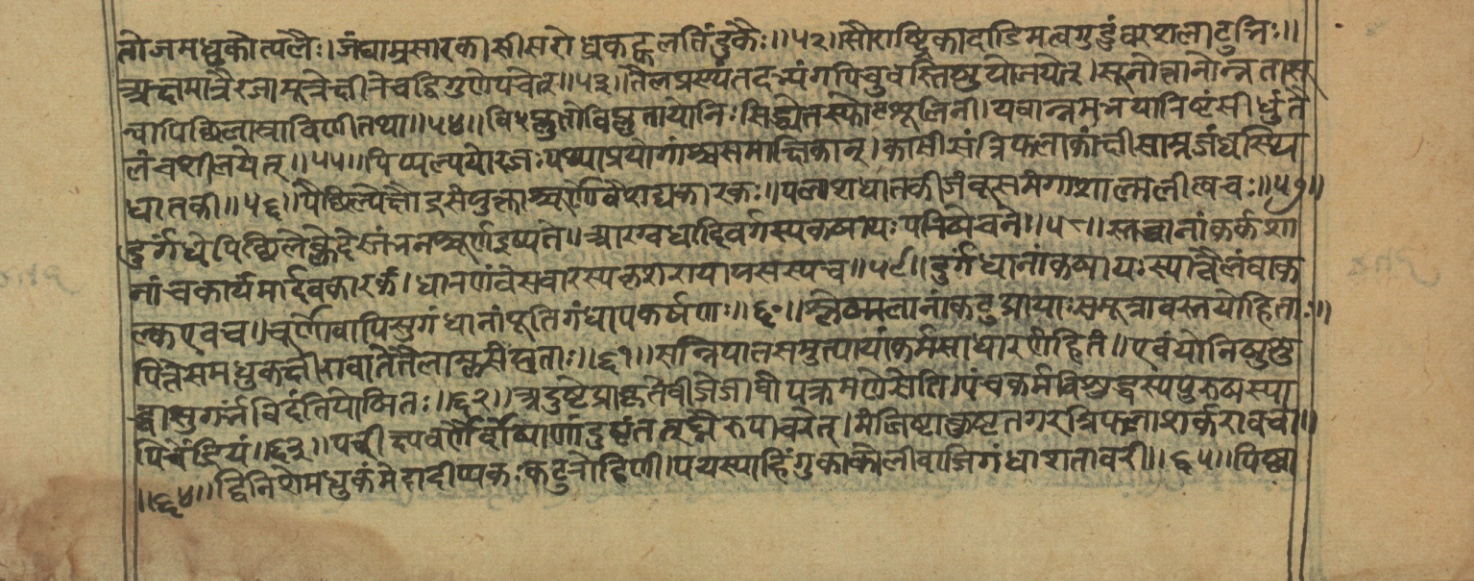 तोजमधुकोत्पलैः। जंब्वाम्रसारकासीसरोध्रकट्फलतिंदुकैः॥५२॥सौराष्ट्रिकादाडिमत्वगुडुंबरशलाटुभिः॥
अक्षमात्रैरजामूत्रेक्षीरेचद्विगुणेपचेत्॥५३॥तैलप्रस्थंतदभ्यंगपिचुवस्तिषुयोजयेत्।सूनोत्तानोन्नतास्त
ब्धापिछिलास्राविणीतथा॥५४॥विप्लुतोविप्लुतायोनिःसिद्ध्येतस्फोटशूलिनी।यवान्नमभयारिष्टंसीधुंतै
लंचशीलयेत्॥५५॥पिप्पल्ययोरजःपथ्याप्रयोगांश्चसमाक्षिकान्।कासीसंत्रिफलाकांक्षीसाम्रजंब्वस्थि
धातकी॥५६॥पैछिल्येक्षौद्रसंयुक्तश्चूर्णोवैशद्यकारकः॥पलाशधातकीजंबूसमंगाशाल्मलीत्वचः॥५७॥
दुर्गंधेपिछिलेक्लेदेस्तंभनश्चूर्णइष्यते॥आरग्वधादिवर्गस्यकषायःपरिषेचने॥५८॥स्तब्धानांकर्कशा
नांचकार्यंमार्दवकारकं।धारणंवेसवारस्यकृशरापायसस्यच॥५९॥दुर्गंधानांकषायःस्यात्तैलंवाक
ल्कएवच॥चूर्णोवापिसुगंधानांपूतिगंधापकर्षणः॥६०॥श्लेष्मलानांकटुप्रायाःसमूत्रावस्तयोहिताः॥
पित्तेसमधुकक्षीरावातेतैलाम्लसंयुताः॥६१॥सन्निपातसमुत्थायांकर्मसाधारणंहितं॥एवंयोनिषुशु
द्धासुगर्भंविदंतियोषितः॥६२॥अदुष्टेप्राकृतेबीजेजीवोपक्रमणेसति।पंचकर्मविशुद्धस्यपुरुषस्या
पिचेंद्रियं॥६३॥परीक्ष्यवर्णैर्दोषाणांदुष्टंतत्घ्नैरुपाचरेत्।मंजिष्टाकुष्टतगरत्रिफलाशर्करावचा॥
॥६४॥द्वेनिशेमधुकंमेदादीप्यकःकटुरोहिणी।पयस्याहिंगुकाकोलीवाजिगंधाशतावरी॥६५॥पिष्ट्वा